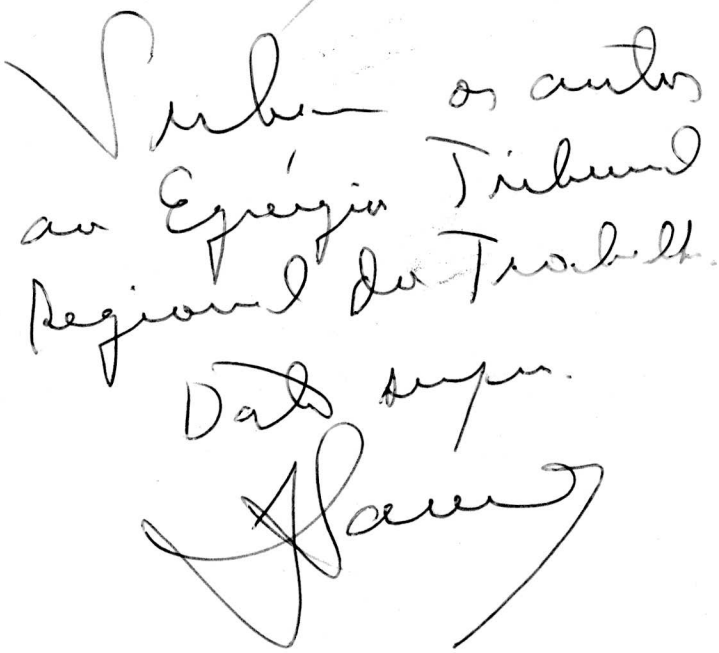 Subam os autos
ao Egrégio Tribunal
Regional do Trabalho.
Data supra.